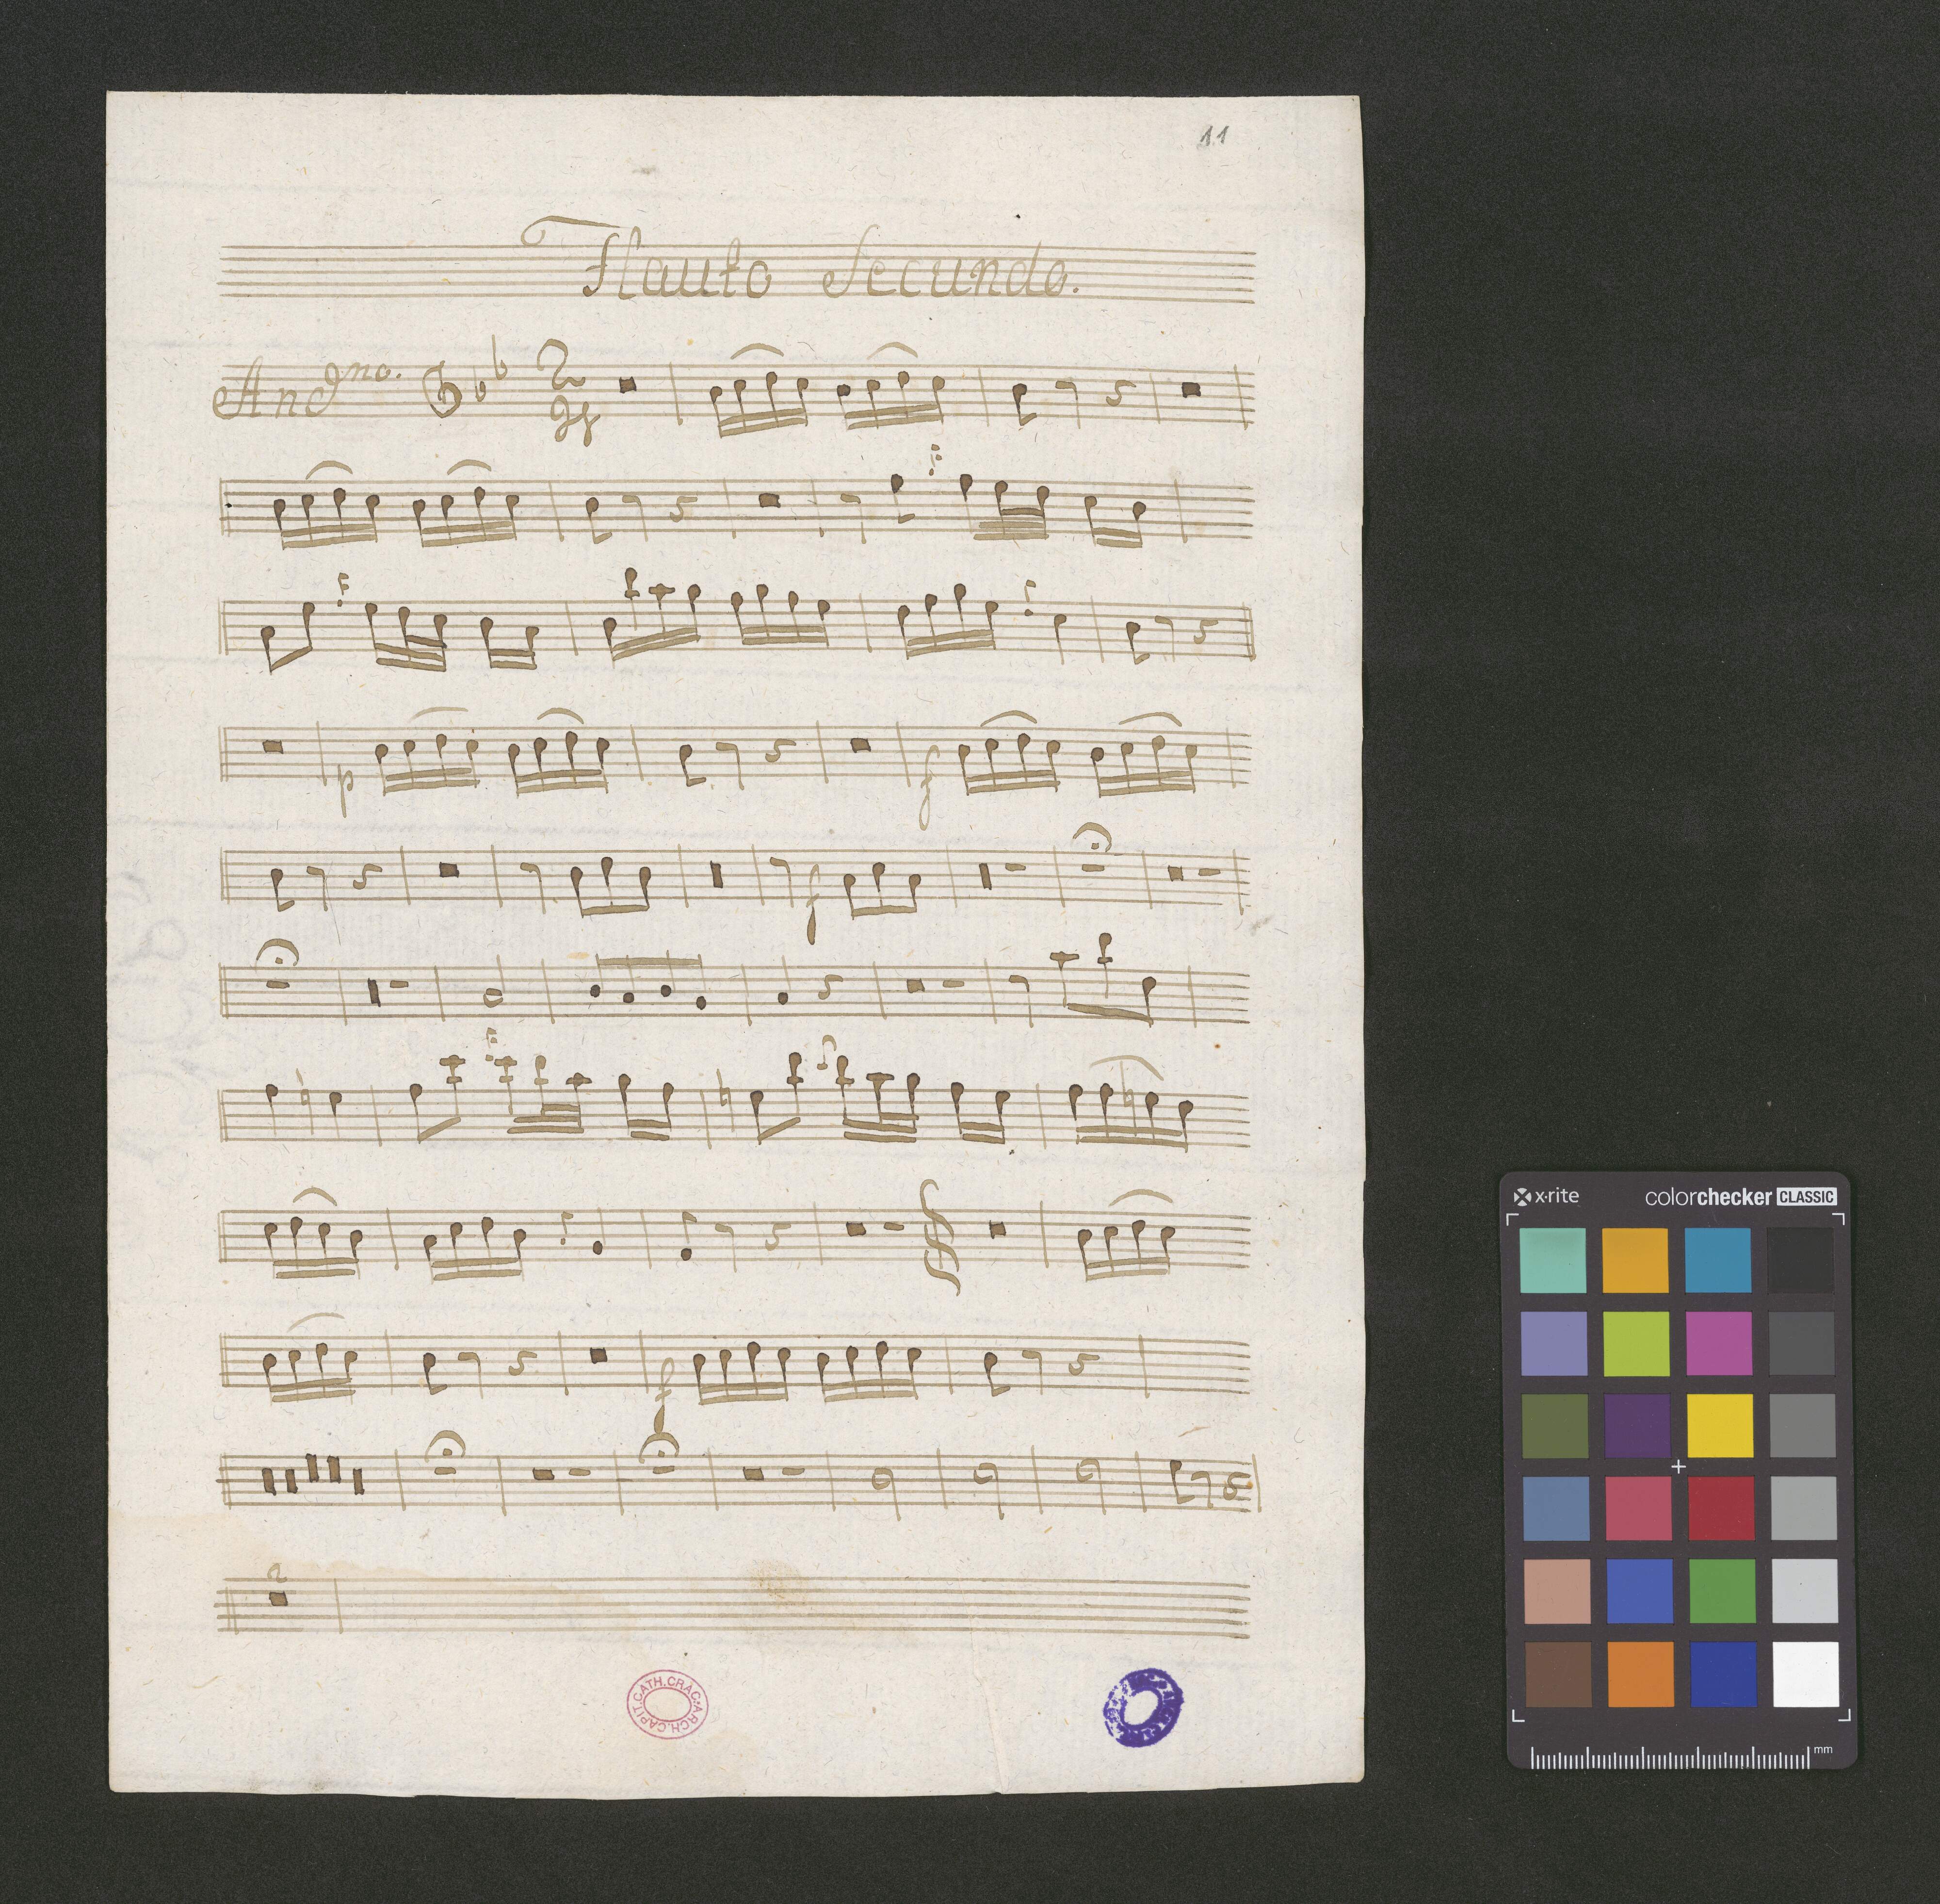 11
Flauto Secundo.
Andno. 2
p f
f
f
2
ARCH.CAPIT.CATH.CRAC.
x·rite colorchecker CLASSIC
mm